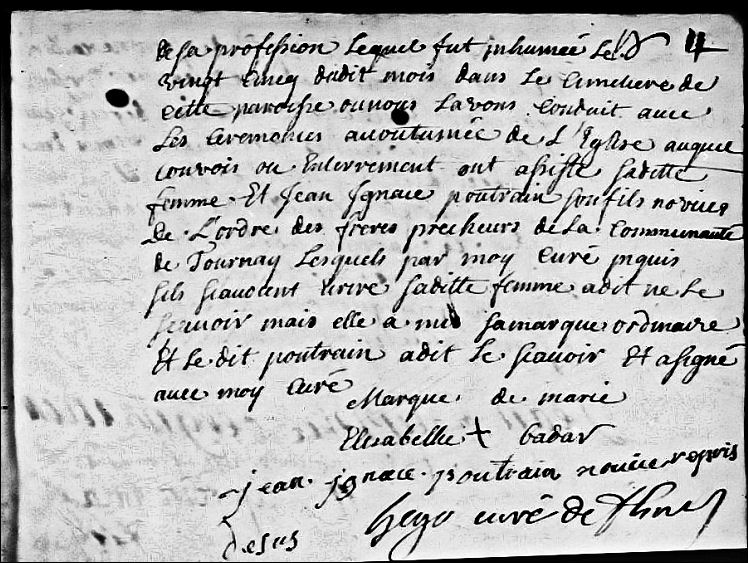 4
de sa profession lequel fut inhumée le
vingt cincq dudit mois dans le cimetiere de
cette paroisse ou nous lavons conduit avec
les ceremonies accoutumée de L'Eglise auquel
convois ou Enterrement ont assisté saditte
femme Et Jean Ignace poutrain son fils novice
de L'ordre des freres precheurs de la Communauté
de Tournay Lesquels par moy curé inquis
sils scavoient ecrire saditte femme a dit ne le
scavoir mais elle a mis sa marque ordinaire
Et le dit poutrain a dit le scavoir Et a signé
avec moy curé
Marque de marie
Elisabethe + badar
jean ignace poutrain novice repris
desus
curé de